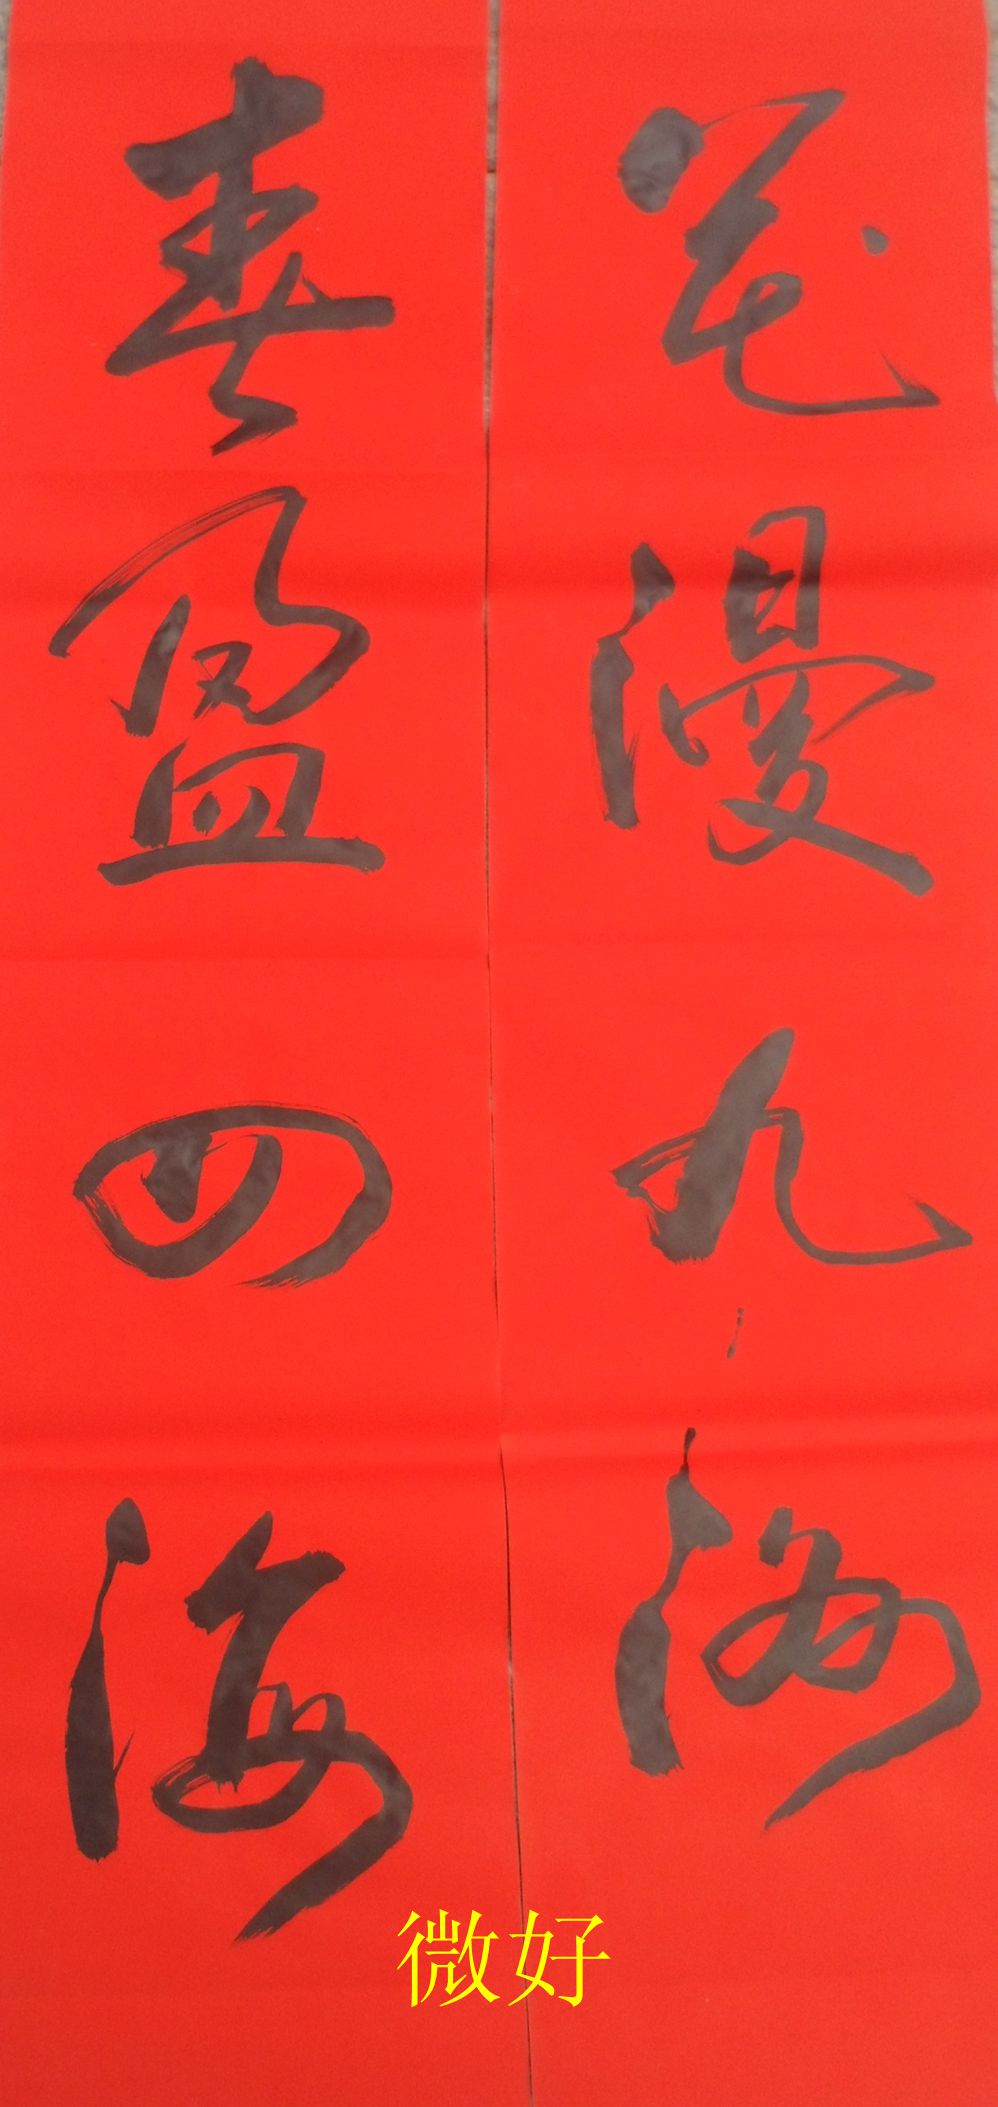 春盈四海
花漫九洲
微好